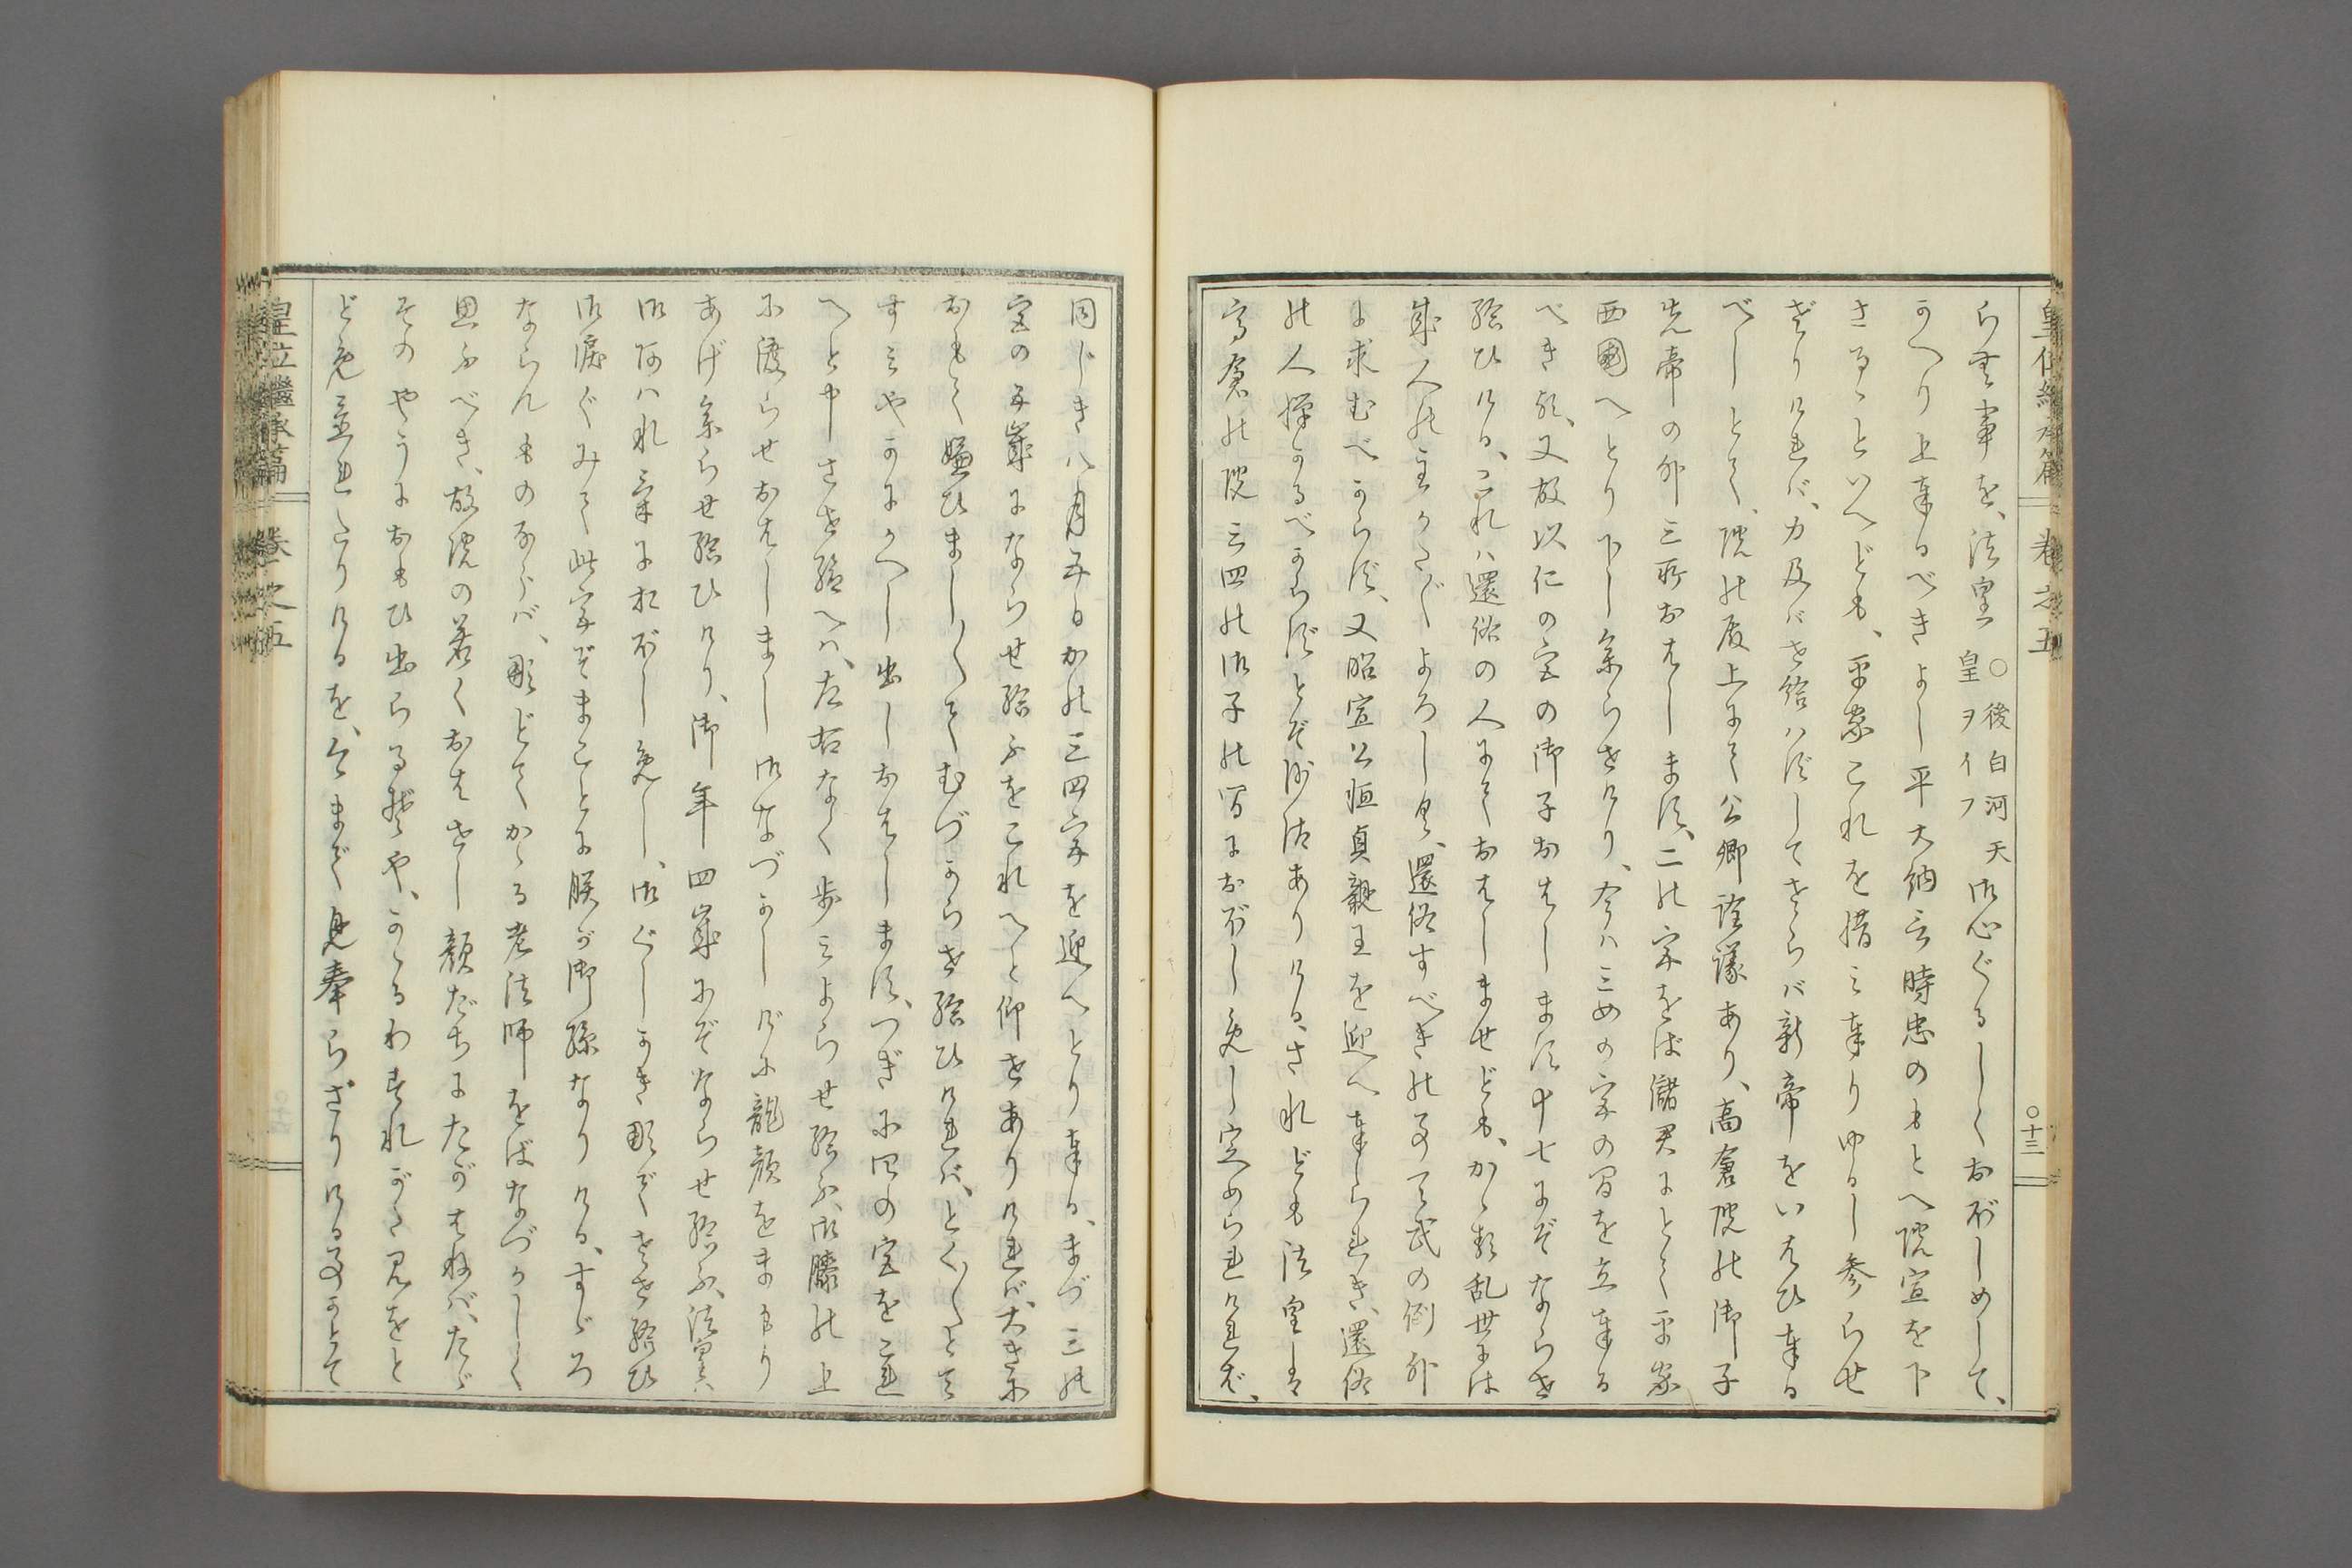 皇位繼承篇 卷之五 ○十三
らむ事を、法皇 ○後白河天皇ヲイフ 御心ぐるしくおぼしめして、
かへり上奉るべきよし平大納言時忠のもとへ院宣を下
さるゝといへども、平家これを惜み奉りゆるし參らせ
ざりければ、力及ばせ給はずしてさらば新帝をいはひ奉る
べしとて、院の殿上にて公卿詮議あり、高倉院の御子
先帝の外三所おはします、二の宮をば儲君にとて平家
西國へとり下し參らせけり、今は三四の宮の間を立奉る
べき歟、又故以仁の宮の御子おはします十七にぞならせ
給ひける、これは還俗の人にておはしませども、かゝる亂世には
成人の主かたがたよろしく、還俗すべきの事天武の例外
に求むべからず、又昭宣公恒貞親王を迎へ奉られき、還俗
の人憚かるべからずとぞ沙汰ありける、されども法皇は
高倉の院三四の御子の間におぼし免し定められければ、
同じき八月五日かの三四宮を迎へとり奉る、まづ三の
宮の五歳にならせ給ふをこれへと仰せありければ、大きに
おもて嫌ひましましてむづからせ給ひければ、とくとくとて
すみやかにかへし出しおはします、つぎに四の宮をこれ
へと申させ給へば、左右なく歩みよらせ給ふ、御膝の上
に渡らせおはしまし御なつかしげに龍顔をまもり
あげ參らせ給ひけり、御年四歳にぞならせ給ふ、法皇
御阿はれ氣におぼし免し、御ぐしかき撫でさせ給ひ
御涙ぐみて此宮ぞまことに朕が御孫なりける、すゞろ
ならんものならば、那どてかゝる老法師をばなつかしく
思ふべき、故院の若くおはせし顔だちにたがはねば、たゞ
そのやうにおもひ出らるゝぞや、かゝるわすれがたみをと
ど免置れたりけるを、今まで見奉らざりける事よとて
皇位繼承篇 卷之五